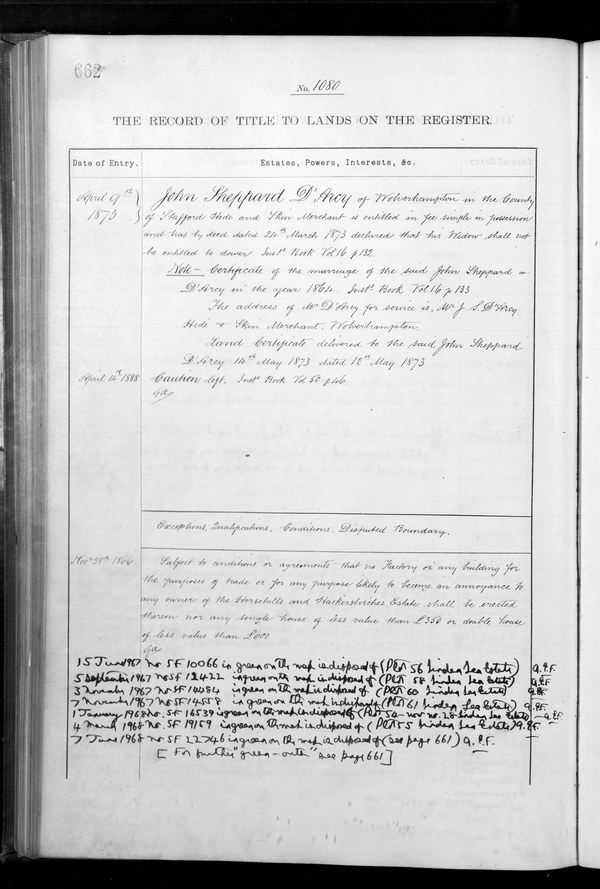 662
No. 1080
THE RECORD OF TITLE TO LANDS ON THE REGISTER.
Date of Entry.
Estates, Powers, Interests, &c.
April 9th 1873
John Sheppard D'Arcy of Wolverhampton in the County
of Stafford Hide and Skin Merchant is entitled in fee simple in possession
and has by deed dated 24th March 1873 declared that his Widow shall not
be entitled to dower. Inst. Book Vol 16 p 132.
Note - Certificate of the marriage of the said John Sheppard
D'Arcy in the year 1864. Inst. Book Vol 16 p 133
The address of Mr D'Arcy for service is, Mr J. S. D'Arcy
Hide & Skin Merchant, Wolverhampton.
Land Certificate delivered to the said John Sheppard
D'Arcy 14th May 1873 dated 12th May 1873
April 14th 1888
Caution left. Inst. Book Vol 50 p 46.
Exceptions, Qualifications, Conditions, Disputed Boundary.
Novr 28th 1866
Subject to conditions or agreements that no Factory or any building for
the purposes of trade or for any purpose likely to become an annoyance to
any owner of the Horsehills and Estate shall be erected
thereon nor any single house of less value than £350 or double house
of less value than £600
15 June 1967 No. SF 10066 in green on the map is disposed of (Plot 56 Linden Lea Estate) a.P.F.
5 September 1967 No SF 12422 in green on the map is disposed of (Plot 58 Linden Lea Estate) a.P.F.
3 November 1967 No SF 14084 in green on the map is disposed of (Plot 60 Linden Lea Estate) a.P.F.
7 November 1967 No. SF 14558 in green on the map is disposed of (Plot 61 Linden Lea Estate) a.P.F.
1 January 1968 No. SF 16539 in green on the map is disposed of (Plot 54 - now no. 28 Linden Lea Estate) a.P.F.
4 March 1968 No SF 19159 in green on the map is disposed of (Plot 55 Linden Lea Estate) a.P.F.
7 June 1968 No SF 22746 in green on the map is disposed of (see page 661) a.P.F.
[For further "green-outs" see page 661]